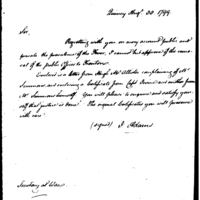 Quincy Aug. 30. 1799.
Sir
Regretting with you on every account public and
private the prevalence of the Fever, I cannot but approve of the remov
al of the public offices to Trenton.
Enclosed is a letter from Mr. complaining of Mr
and enclosing a Certificate from Capt. and another from
Mr himself. You will please to enquire and satisfy your
self that justice is done. The enclosed Certificates you will preserve
with care.
(signed) J. Adams
Secretary at War.